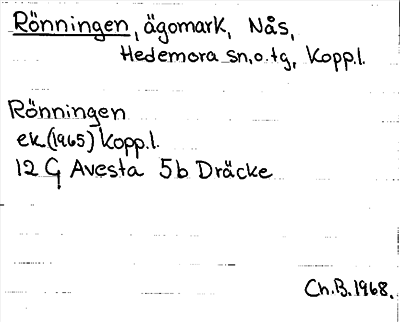 Rönningen, ägomark, Nås,
Hedemora sn. o. tg, Kopp.l.
Rönningen
ek.(1965) Kopp.l.
12 G Avesta 5b Dräcke
Ch.B.1968.